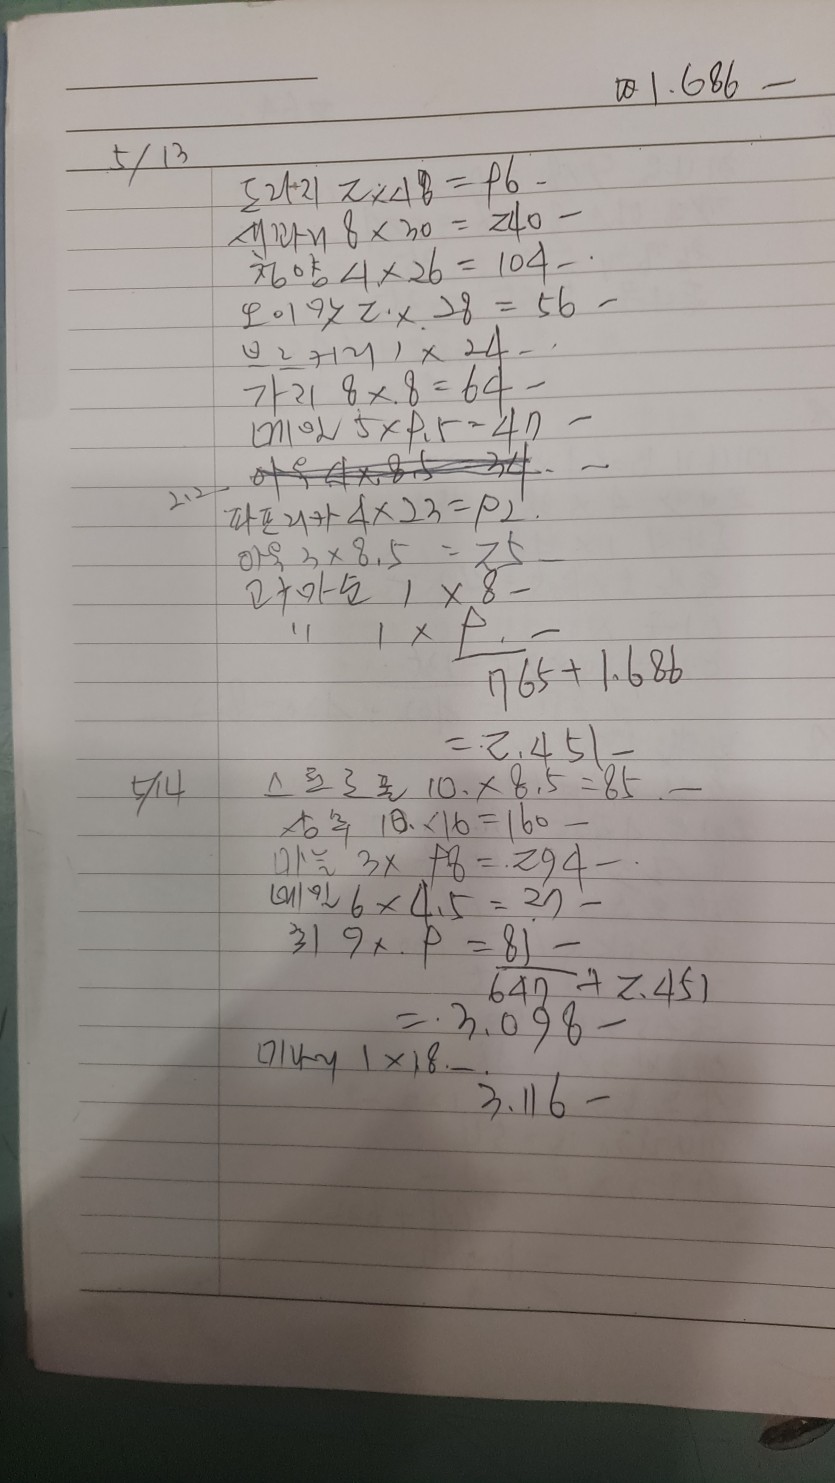 1.686 —
5/13
도라지 2×48 = 96 —
8 × 30 = 240 —
청양 4 × 26 = 104 —.
오이맛 2.×.28 = 56 —
1 × 24 —.
가지 8 ×.8 = 64 —
5 × 9.5 = 47 —
아욱 4×8.5 34. —
2.2
파프리카 4 × 23 = 92.
아욱 3 × 8.5 = 25 —
1 × 8 —
" 1 × 9. —
765 + 1.686
=.2.451 —
5/14 스트로폴 10.×8.5 = 85.—
상추 10.×16 = 160 —
마늘 3× 98 =.294 —.
6 × 4.5 = 27 —
9×.9 = 81 —
647 + 2.451
=.3.098 —
미나리 1 × 18.—.
3.116 —